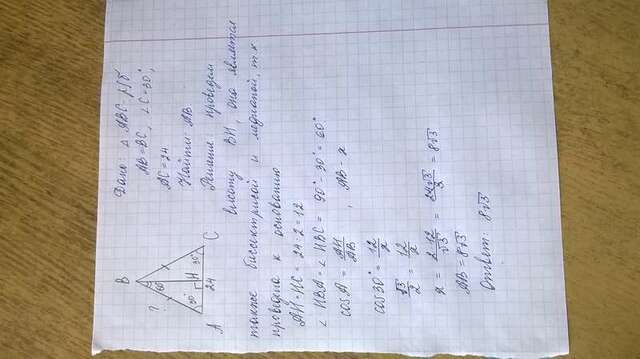 Дано: △ ABC, р/б
AB=BC, ∠C=30°,
AC=24
Найти: AB
B
?
60°
30°
H
30°
A
24
C
Решение: проведём
высоту BH, она является
также биссектрисой и медианой, т.к
проведена к основанию
AH=HC = 24:2=12
∠HBA=∠HBC = 90°-30°=60°
cos A = AH/AB, AB-x
cos30° = 12/x
√3/2 = 12/x
x = 2·12/√3 = 24√3/3 = 8√3
AB=8√3
Ответ: 8√3